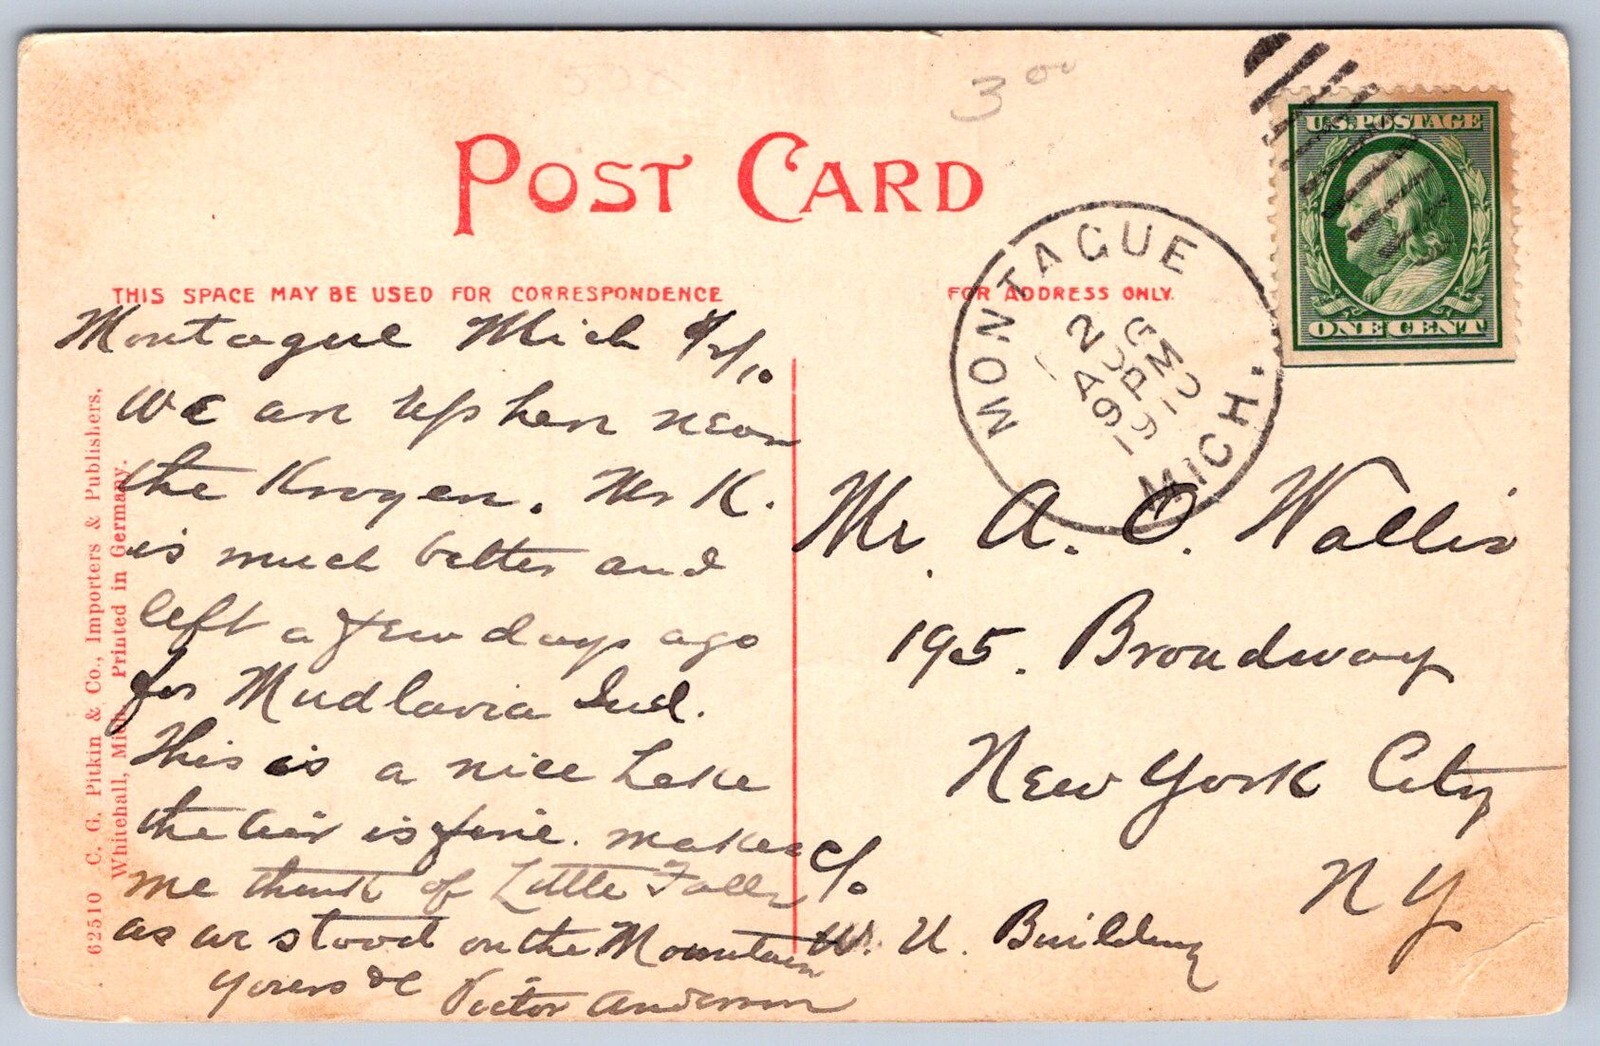 3 00
U.S. POSTAGE
ONE CENT
POST CARD
THIS SPACE MAY BE USED FOR CORRESPONDENCE
FOR ADDRESS ONLY.
MONTAGUE
2
AUG
9 PM
1910
MICH.
Montague Mich 8/2/10
We are up here near
the Krogen. Mr K.
is much better and
left a few days ago
for Mudlavia Ind.
This is a nice Lake
the air is fine. makes
me think of Little Falls
as we stood on the Mountain
yours &c Victor Anderson
Mr A. O. Wallis
195. Broadway
New York City
N Y
c/o
W. U. Building
62510 C. G. Pitkin & Co., Importers & Publishers.
Whitehall, Mich. Printed in Germany.